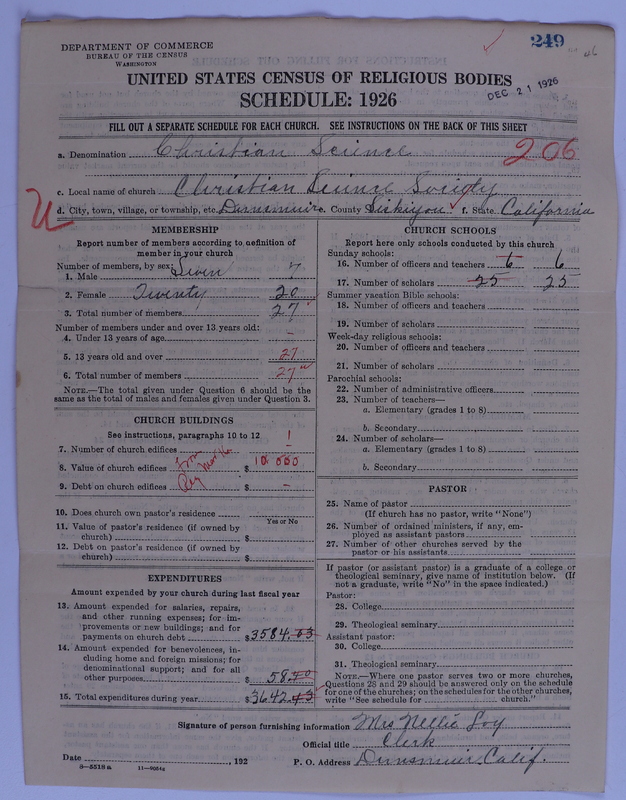 DEPARTMENT OF COMMERCE
BUREAU OF THE CENSUS
WASHINGTON
249
UNITED STATES CENSUS OF RELIGIOUS BODIES
SCHEDULE: 1926
DEC 21 1926
FILL OUT A SEPARATE SCHEDULE FOR EACH CHURCH. SEE INSTRUCTIONS ON THE BACK OF THIS SHEET
a. Denomination Christian Science 206
c. Local name of church Christian Science Society
d. City, town, village, or township, etc. Dunsmuir e. County Siskiyou f. State California
MEMBERSHIP
Report number of members according to definition of
member in your church
Number of members, by sex:
1. Male Seven 7
2. Female Twenty 20
3. Total number of members 27
Number of members under and over 13 years old:
4. Under 13 years of age –
5. 13 years old and over 27
6. Total number of members 27
NOTE.—The total given under Question 6 should be
same as the total of males and females given under Question 3.
CHURCH BUILDINGS
See instructions, paragraphs 10 to 12
7. Number of church edifices 1
8. Value of church edifices $ 10 000
9. Debt on church edifices $ –
10. Does church own pastor's residence
Yes or No
11. Value of pastor's residence (if owned by
church) $
12. Debt on pastor's residence (if owned by
church) $
EXPENDITURES
Amount expended by your church during last fiscal year
13. Amount expended for salaries, repairs,
and other running expenses; for im-
provements or new buildings; and for
payments on church debt $ 3584.03
14. Amount expended for benevolences, in-
cluding home and foreign missions; for
denominational support; and for all
other purposes $ 58.40
15. Total expenditures during year $ 3642.43
CHURCH SCHOOLS
Report here only schools conducted by this church
Sunday schools:
16. Number of officers and teachers 6 6
17. Number of scholars 25 25
Summer vacation Bible schools:
18. Number of officers and teachers
19. Number of scholars
Week-day religious schools:
20. Number of officers and teachers
21. Number of scholars
Parochial schools:
22. Number of administrative officers
23. Number of teachers—
a. Elementary (grades 1 to 8)
b. Secondary
24. Number of scholars—
a. Elementary (grades 1 to 8)
b. Secondary
PASTOR
25. Name of pastor
(If church has no pastor, write "None")
26. Number of ordained ministers, if any, em-
ployed as assistant pastors
27. Number of other churches served by the
pastor or his assistants
If pastor (or assistant pastor) is a graduate of a college or
theological seminary, give name of institution below. (If
not a graduate, write "No" in the space indicated.)
Pastor:
28. College
29. Theological seminary
Assistant pastor:
30. College
31. Theological seminary
NOTE.—Where one pastor serves two or more churches,
Questions 28 and 29 should be answered only on the schedule
for one of the churches; on the schedules for the other churches,
write "See schedule for church."
Signature of person furnishing information Mrs Nellie Loy
Official title Clerk
Date , 192 P. O. Address Dunsmuir, Calif.
8—5518a 11—9054a